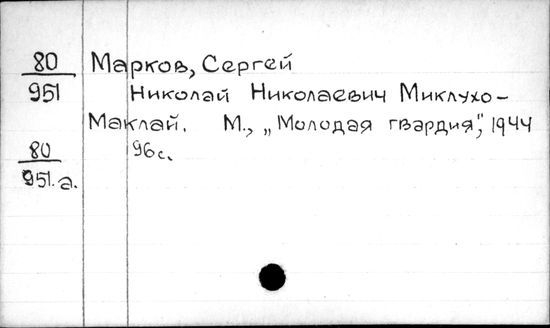 80 Марков, Сергей
951 Николай Николаевич Миклухо-
Маклай. М., „Молодая гвардия", 1944
80 96с.
951.а.